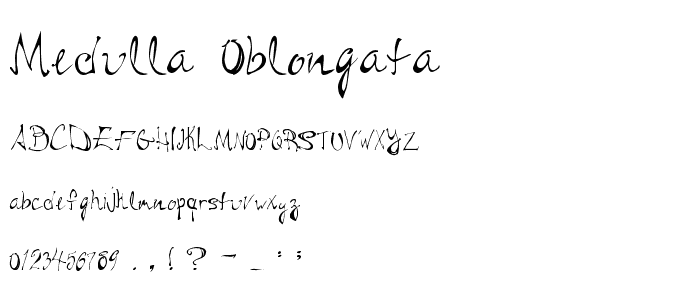 Medulla Oblongata
ABCDEFGHIJKLMNOPQRSTUVWXYZ
abcdefghijklmnopqrstuvwxyz
0123456789 . , ! ? - _ : ;